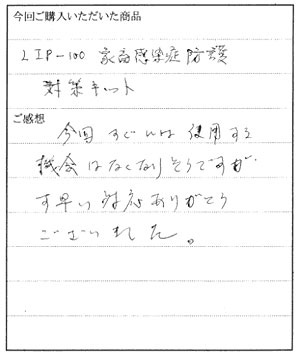 今回ご購入いただいた商品
LIP-100 家畜感染症防護
対策キット
ご感想
今回すぐには使用する
機会はなくなりそうですが、
す早い対応ありがとう
ございました。